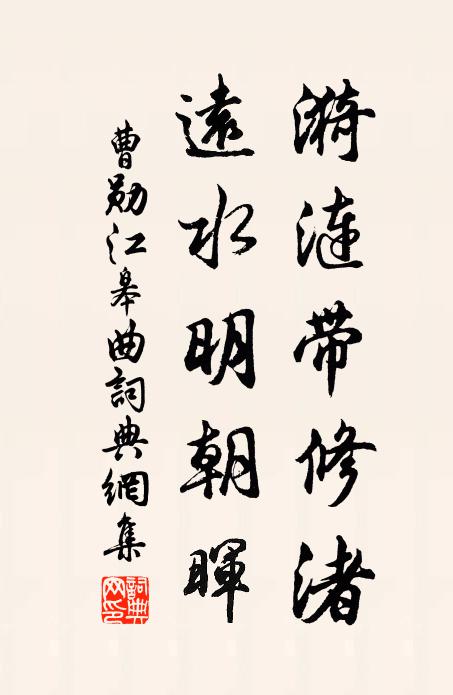 漪漣帶修渚
遠水明朝暉
曹勛江皋曲詞典網集
詞典网印